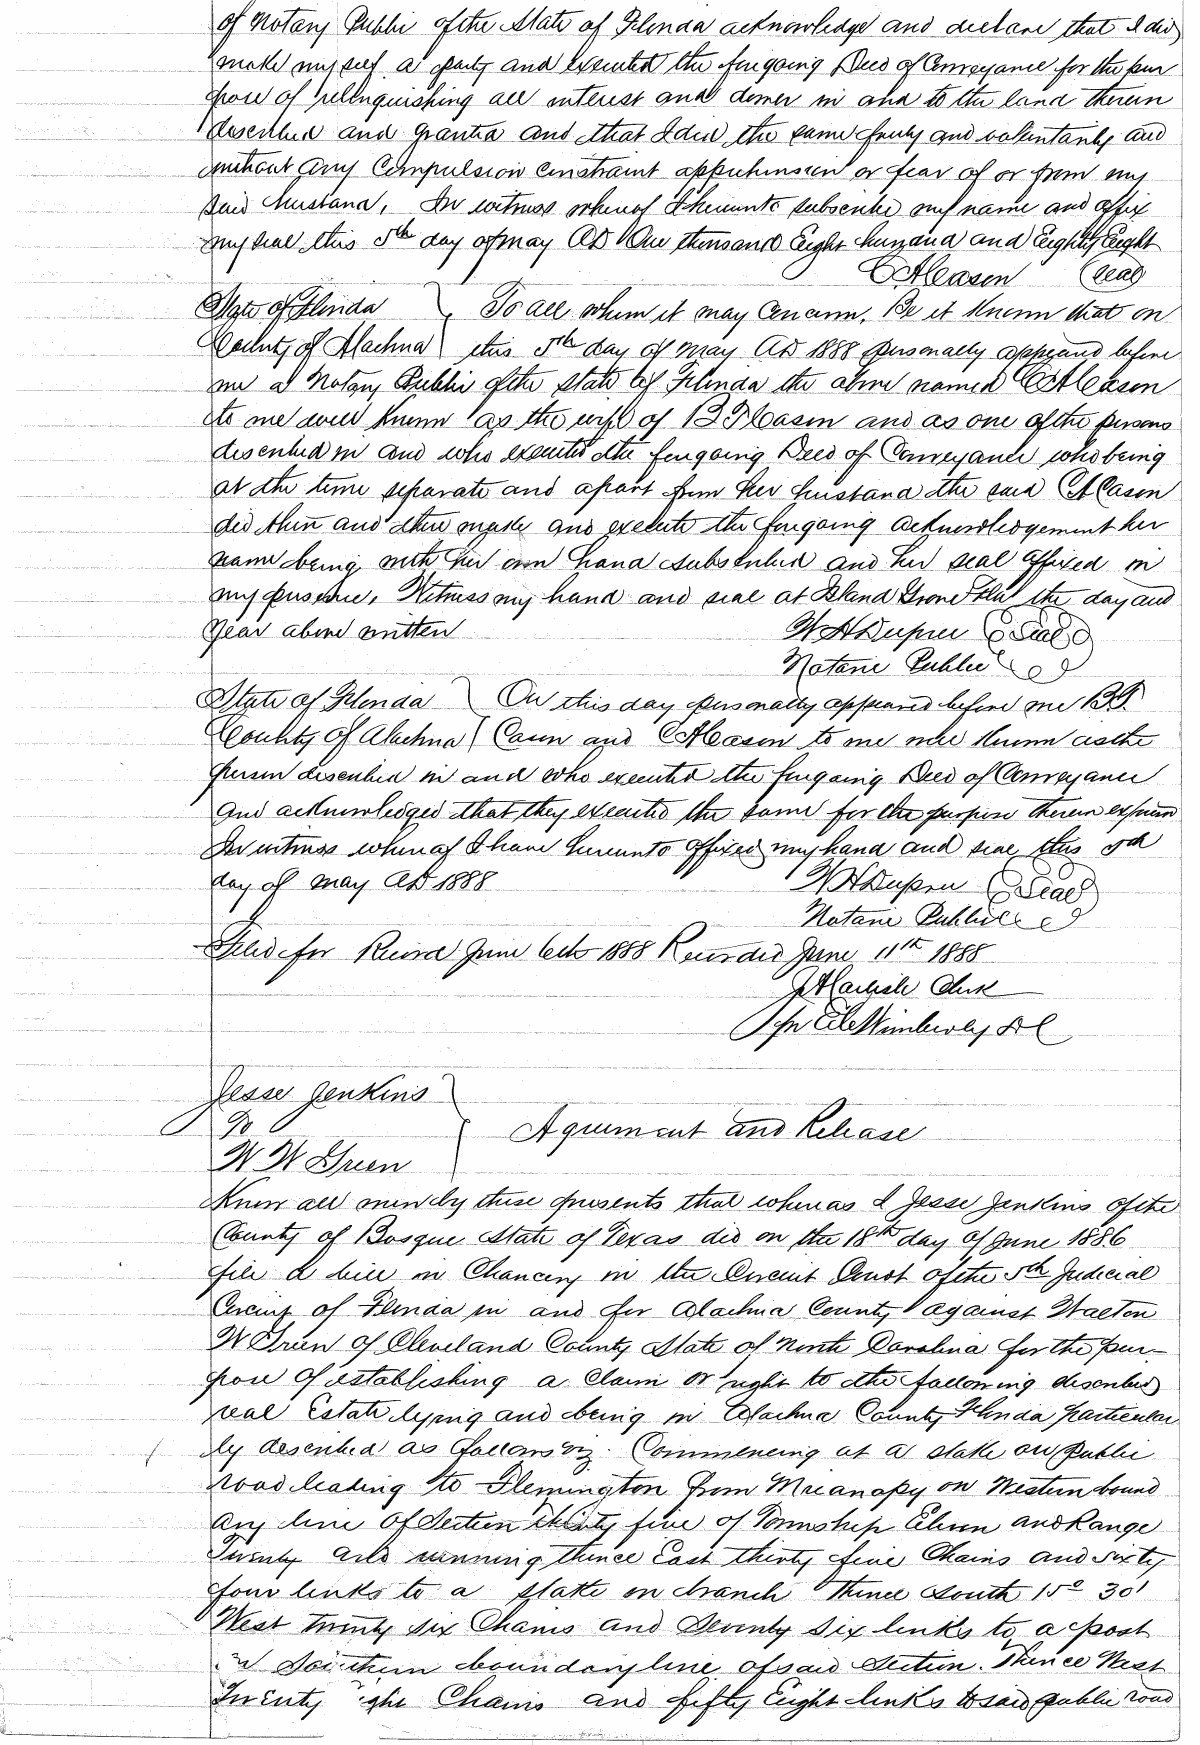 of Notary Public of the State of Florida acknowledge and declare that I did
make myself a party and executed the foregoing Deed of Conveyance for the pur
pose of relinquishing all interest and dower in and to the land therein
described and granted and that I did the same freely and voluntarily and
without any Compulsion constraint apprehension or fear of or from my
said husband, In witness whereof I hereunto subscribe my name and affix
my seal this 5th day of May AD One thousand Eight hundred and Eighty Eight
C A Cason (Seal)
State of Florida } To all whom it may Concern, Be it Known that on
County of Alachua } this 5th day of May AD 1888 personally appeared before
me a Notary Public of the State of Florida the above named C A Cason
to me well known as the wife of B F Cason and as one of the persons
described in and who executed the foregoing Deed of Conveyance who being
at the time separate and apart from her husband the said C A Cason
did then and there make and execute the foregoing acknowledgement her
name being with her own hand subscribed and her seal affixed in
my presence, Witness my hand and seal at Island Grove Fla the day and
year above written W H Dupree (Seal)
Notarie Public
State of Florida } On this day personally appeared before me B F
County of Alachua } Cason and C A Cason to me well Known as the
person described in and who executed the foregoing Deed of Conveyance
and acknowledged that they executed the same for the purpose therein expressed
In witness whereof I have hereunto affixed my hand and seal this 5th
day of May AD 1888 W H Dupree (Seal)
Notarie Public
Filed for Record June 6th 1888 Recorded June 11th 1888
J A Carlisle Clerk
Wimberly D C
Jesse Jenkins
To } Agreement and Release
W W Green
Know all men by these presents that whereas I Jesse Jenkins of the
County of Bosque State of Texas did on the 18th day of June 1886
file a bill in Chancery in the Circuit Court of the 5th Judicial
Circuit of Florida in and for Alachua County against Walton
W Green of Cleveland County State of North Carolina for the pur-
pose of establishing a Claim or right to the following described
real Estate lying and being in Alachua County Florida particular
ly described as follows viz. Commencing at a stake on public
road leading to Flemington from Micanopy on Western bound
ary line of Section thirty five of Township Eleven and Range
Twenty and running thence East thirty five Chains and sixty
four links to a stake on branch Thence South 15° 30'
West twenty six Chains and Seventy six links to a post
Southern boundary line of said Section. Thence West
Twenty Chains and fifty Eight links to said public road